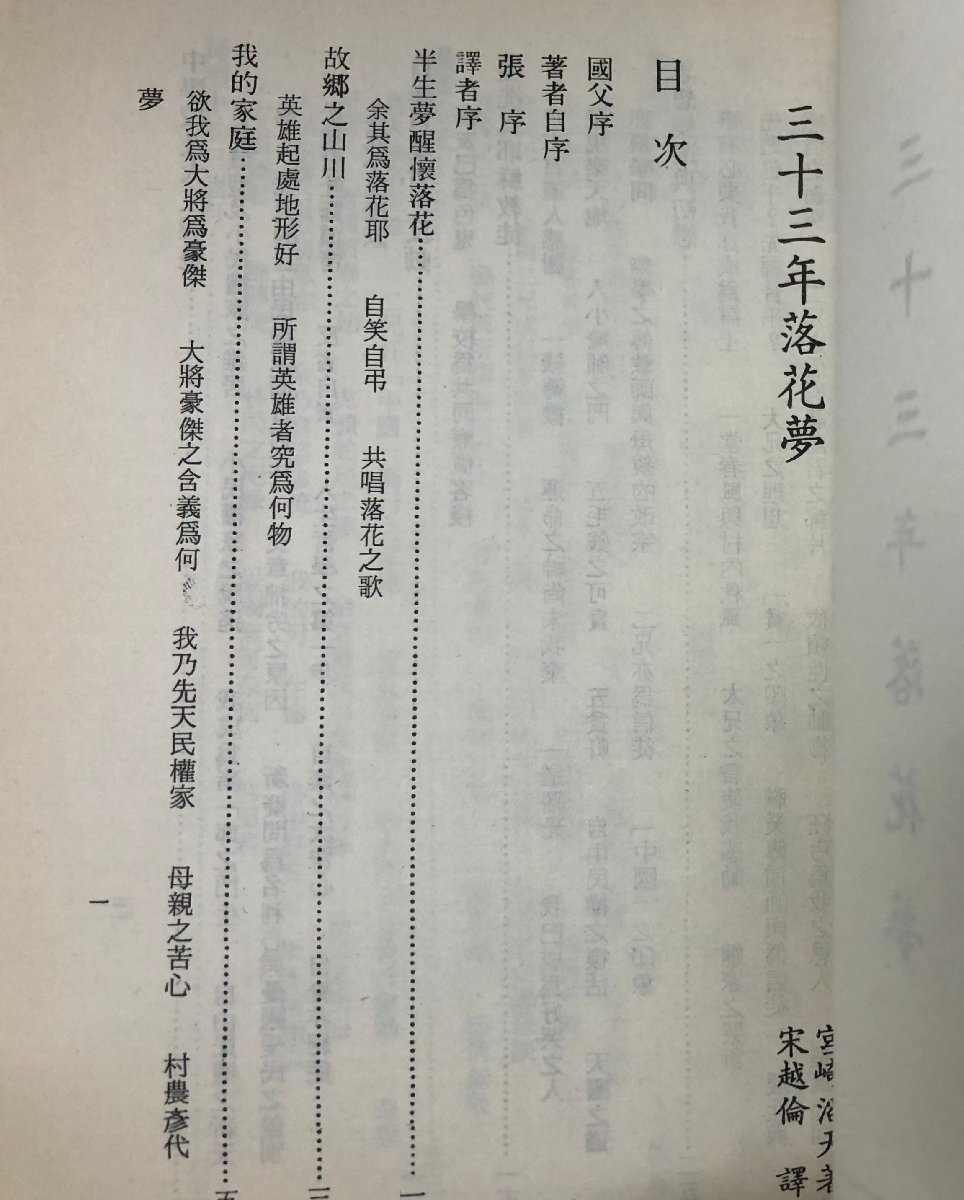 三十三年落花夢
宮崎滔天著
宋越倫 譯
目次
國父序
著者自序
張 序
譯者序
半生夢醒懷落花……一
余其爲落花耶 自笑自弔 共唱落花之歌
故鄉之山川……三
英雄起處地形好 所謂英雄者究爲何物
我的家庭……五
欲我爲大將爲豪傑 大將豪傑之含義爲何 我乃先天民權家 母親之苦心 村農彥代
夢
一